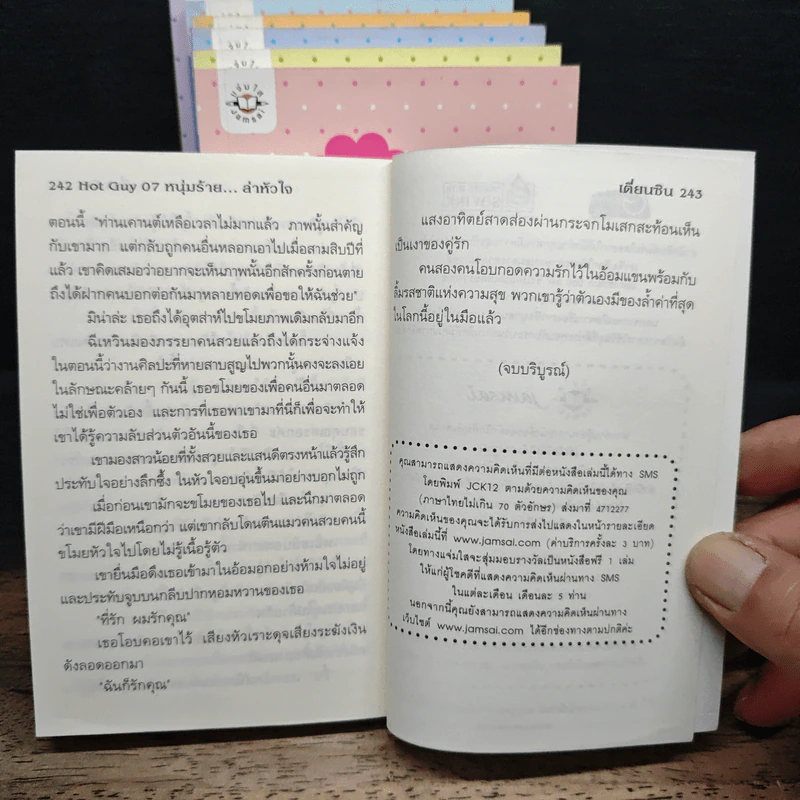 แจ่มใส
Jamsai
242 Hot Guy 07 หนุ่มร้าย... ล่าหัวใจ
ตอนนี้ "ท่านเคานต์เหลือเวลาไม่มากแล้ว ภาพนั้นสำคัญ
กับเขามาก แต่กลับถูกคนอื่นหลอกเอาไปเมื่อสามสิบปีที่
แล้ว เขาคิดเสมอว่าอยากจะเห็นภาพนั้นอีกสักครั้งก่อนตาย
ถึงได้ฝากคนบอกต่อกันมาหลายทอดเพื่อขอให้ฉันช่วย"
มิน่าล่ะ เธอถึงได้อุตส่าห์ไปขโมยภาพเดิมกลับมาอีก
ฉีเหวินมองภรรยาคนสวยแล้วถึงได้กระจ่างแจ้ง
ในตอนนี้ว่างานศิลปะที่หายสาบสูญไปพวกนั้นคงจะลงเอย
ในลักษณะคล้ายๆ กันนี้ เธอขโมยของเพื่อคนอื่นมาตลอด
ไม่ใช่เพื่อตัวเอง และการที่เธอพาเขามาที่นี่ก็เพื่อจะทำให้
เขาได้รู้ความลับส่วนตัวอันนี้ของเธอ
เขามองสาวน้อยที่ทั้งสวยและแสนดีตรงหน้าแล้วรู้สึก
ประทับใจอย่างลึกซึ้ง ในหัวใจอบอุ่นขึ้นมาอย่างบอกไม่ถูก
เมื่อก่อนเขามักจะขโมยของเธอไป และนึกมาตลอด
ว่าเขามีฝีมือเหนือกว่า แต่เขากลับโดนตีนแมวคนสวยคนนี้
ขโมยหัวใจไปโดยไม่รู้เนื้อรู้ตัว
เขายื่นมือดึงเธอเข้ามาในอ้อมอกอย่างห้ามใจไม่อยู่
และประทับจูบบนกลีบปากหอมหวานของเธอ
"ที่รัก ผมรักคุณ"
เธอโอบคอเขาไว้ เสียงหัวเราะดุจเสียงระฆังเงิน
ดังลอดออกมา
"ฉันก็รักคุณ"
เตี่ยนซิน 243
แสงอาทิตย์สาดส่องผ่านกระจกโมเสกสะท้อนเห็น
เป็นเงาของคู่รัก
คนสองคนโอบกอดความรักไว้ในอ้อมแขนพร้อมกับ
ลิ้มรสชาติแห่งความสุข พวกเขารู้ว่าตัวเองมีของล้ำค่าที่สุด
ในโลกนี้อยู่ในมือแล้ว
(จบบริบูรณ์)
คุณสามารถแสดงความคิดเห็นที่มีต่อหนังสือเล่มนี้ได้ทาง SMS
โดยพิมพ์ JCK12 ตามด้วยความคิดเห็นของคุณ
(ภาษาไทยไม่เกิน 70 ตัวอักษร) ส่งมาที่ 4712277
ความคิดเห็นของคุณจะได้รับการส่งไปแสดงในหน้ารายละเอียด
หนังสือเล่มนี้ที่ www.jamsai.com (ค่าบริการครั้งละ 3 บาท)
โดยทางแจ่มใสจะสุ่มมอบรางวัลเป็นหนังสือฟรี 1 เล่ม
ให้แก่ผู้โชคดีที่แสดงความคิดเห็นผ่านทาง SMS
ในแต่ละเดือน เดือนละ 5 ท่าน
นอกจากนี้คุณยังสามารถแสดงความคิดเห็นผ่านทาง
เว็บไซต์ www.jamsai.com ได้อีกช่องทางตามปกติค่ะ